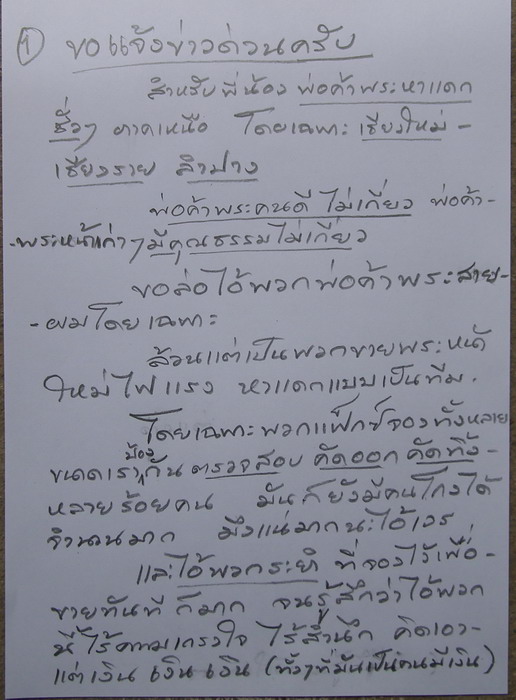 ① ขอแจ้งข่าวด่วนครับ
สำหรับพี่น้อง พ่อค้าพระหาแดก
ชั่วๆ ภาคเหนือ โดยเฉพาะ เชียงใหม่ -
เชียงราย ลำปาง
พ่อค้าพระคนดี ไม่เกี่ยว พ่อค้า-
-พระหน้าเก่าๆ มีคุณธรรมไม่เกี่ยว
ขอล่อไอ้พวกพ่อค้าพระสาย-
-ผมโดยเฉพาะ
ล้วนแต่เป็นพวกขายพระหน้า
ใหม่ไฟแรง หาแดกแบบเป็นทีม.
โดยเฉพาะพวกแฟ็กซ์จองทั้งหลาย
ขนาดเราป้องกัน ตรวจสอบ คัดออก คัดทิ้ง-
หลายร้อยคน มันก็ยังมีคนโกงได้
จำนวนมาก มึงแน่มากนะไอ้เวร
และไอ้พวกระยำ ที่จองไว้เพื่อ-
ขายทันที ก็มาก จนรู้สึกว่าไอ้พวก
นี้ ไร้ความเกรงใจ ไร้สำนึก คิดเอา-
แต่เงิน เงิน เงิน (ทั้งๆที่มันเป็นคนมีเงิน)